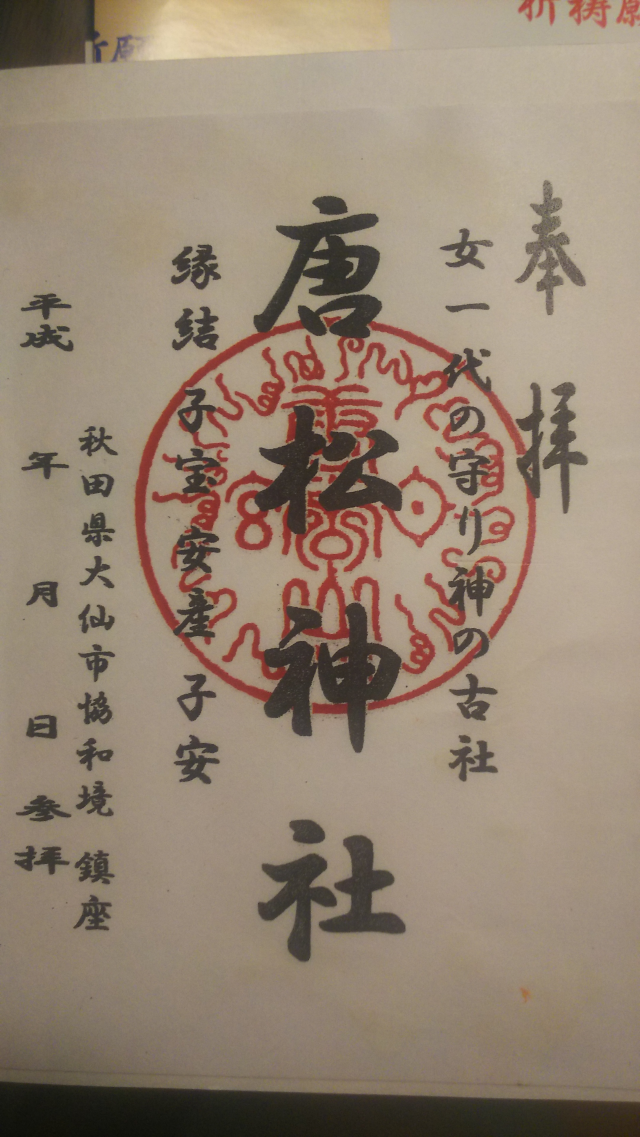 祈祷願
祈願
奉拝
女一代の守り神の古社
唐松神社
縁結 子宝 安産 子安
秋田県大仙市協和境 鎮座
平成 年 月 日 参拝